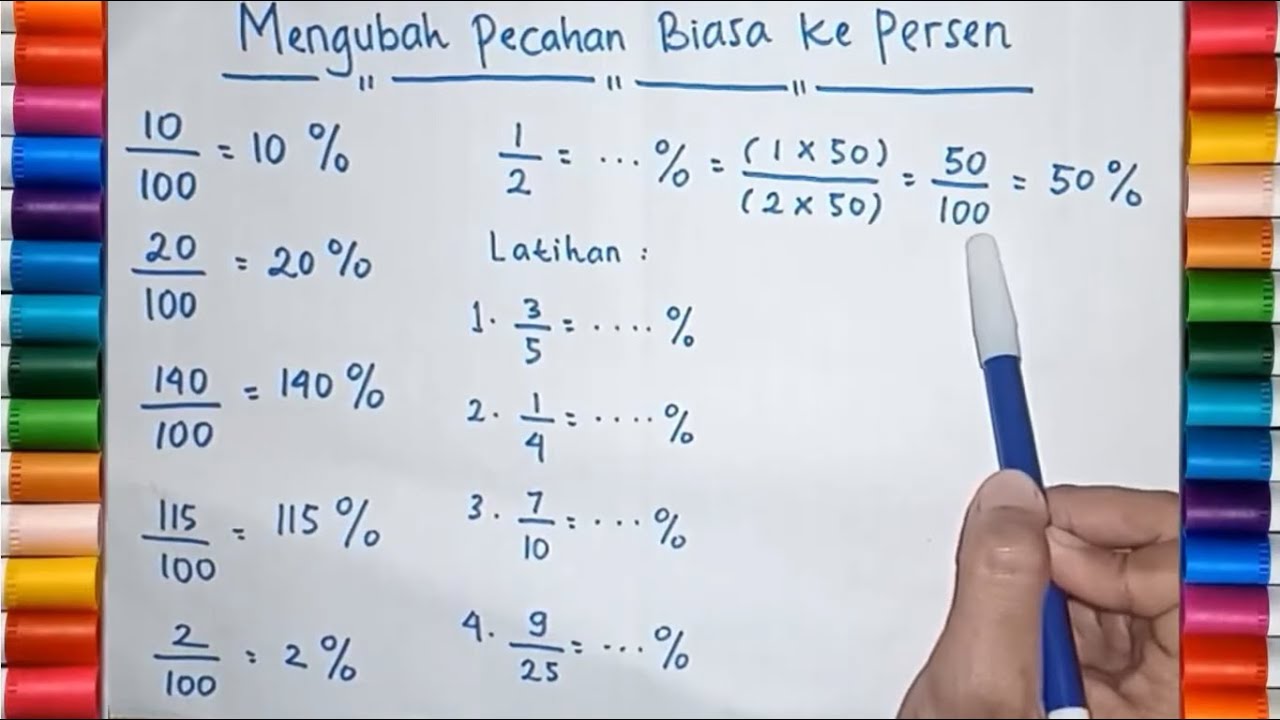 Mengubah Pecahan Biasa ke Persen
10/100 = 10 %
20/100 = 20 %
140/100 = 140 %
115/100 = 115 %
2/100 = 2 %
1/2 = ... % = (1 x 50)/(2 x 50) = 50/100 = 50 %
Latihan :
1. 3/5 = .... %
2. 1/4 = .... %
3. 7/10 = ... %
4. 9/25 = ... %